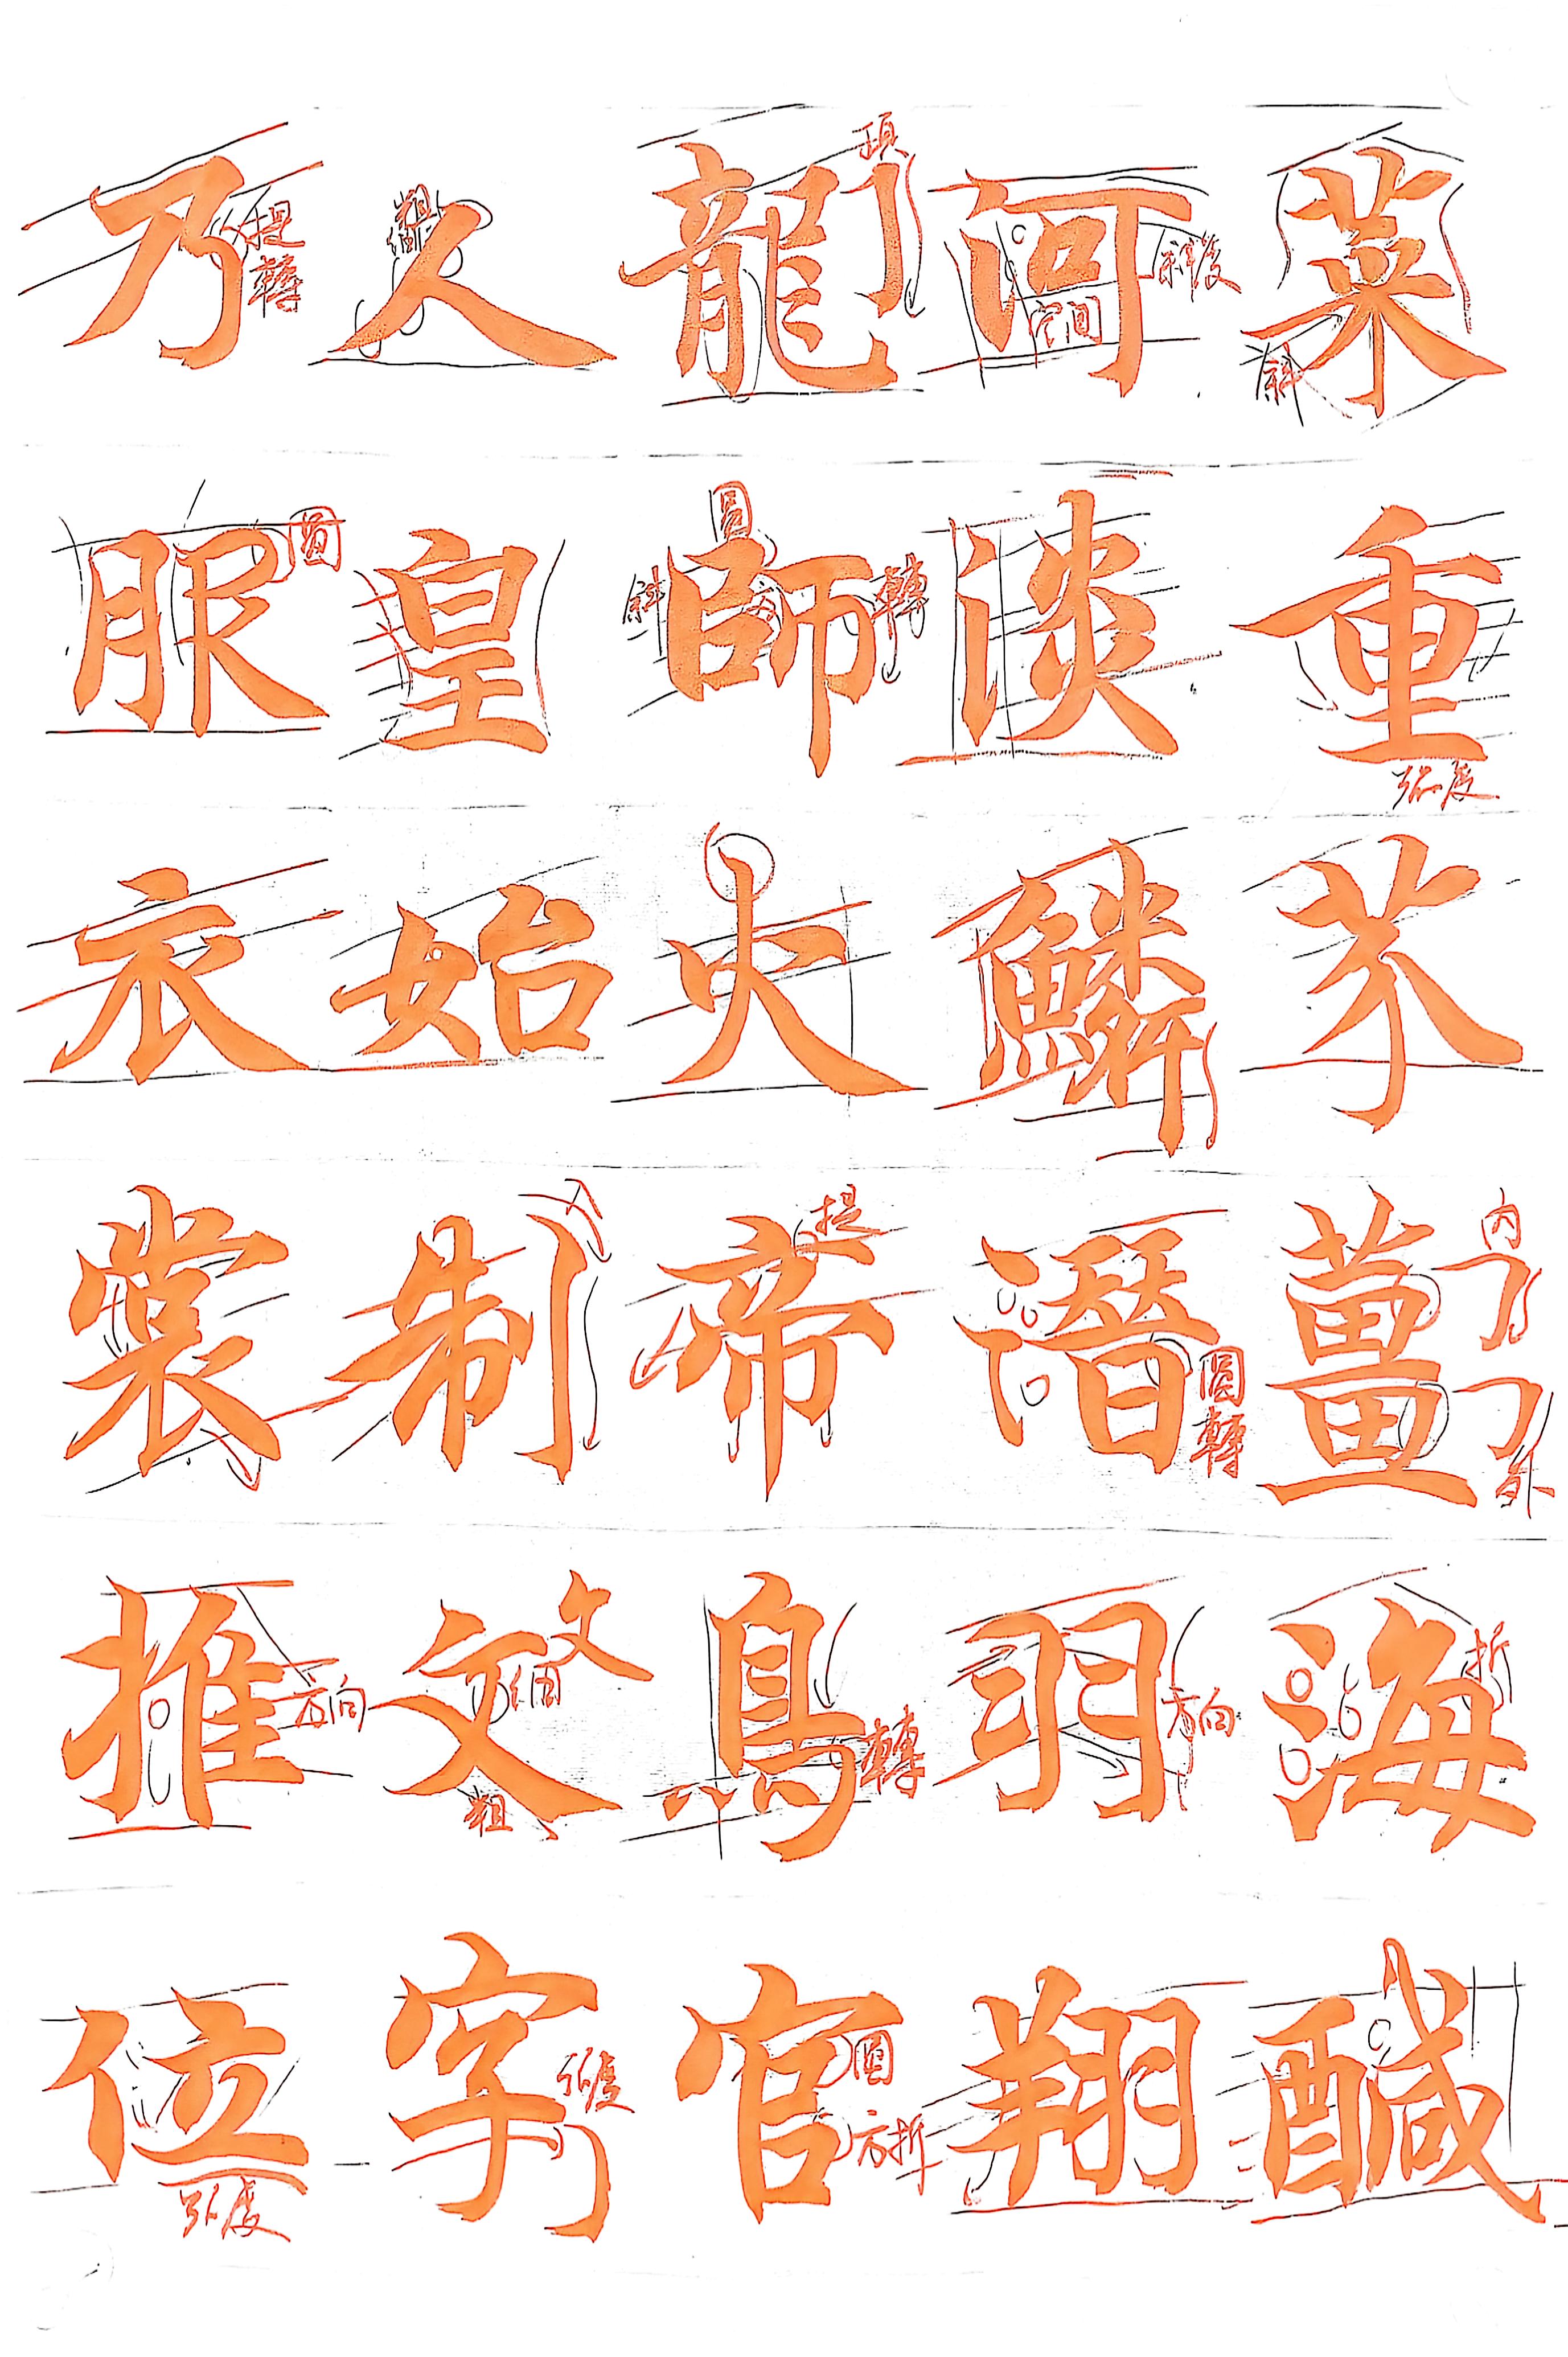 菜重芥薑海醎
河淡鱗潛羽翔
龍師火帝鳥官
人皇始制文字
乃服衣裳推位
斜
弧度
內
外
折
斜度
圓轉
方向
圓
斜
轉
提
轉
圓
方折
粗細
文
細
粗
弧度
提轉
圓
方向
弧度